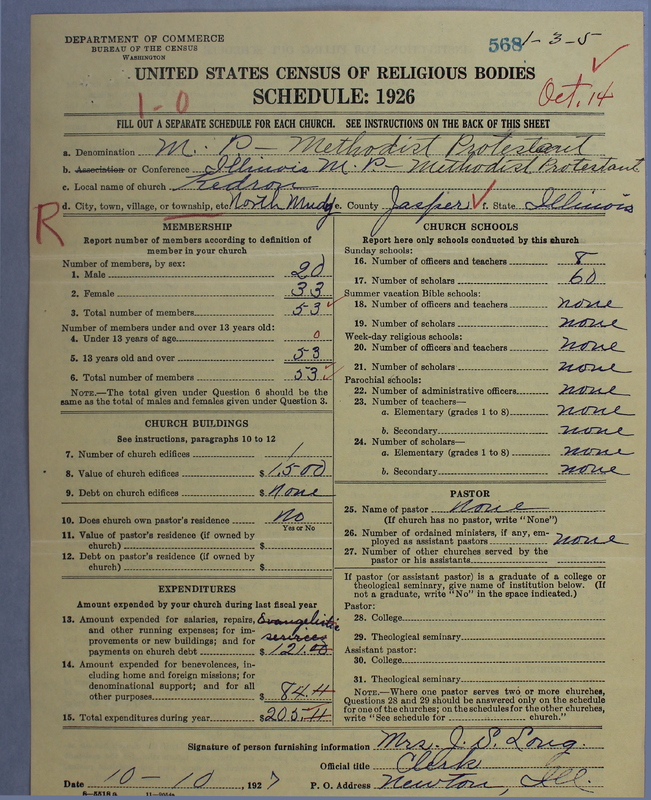 DEPARTMENT OF COMMERCE
BUREAU OF THE CENSUS
WASHINGTON
568 1-3-5
UNITED STATES CENSUS OF RELIGIOUS BODIES
1-0
SCHEDULE: 1926
Oct. 14
FILL OUT A SEPARATE SCHEDULE FOR EACH CHURCH. SEE INSTRUCTIONS ON THE BACK OF THIS SHEET
a. Denomination M. P. - Methodist Protestant
b. Association or Conference Illinois M. P. - Methodist Protestant
c. Local name of church
d. City, town, village, or township, etc. North Mudy e. County Jasper f. State Illinois
R
MEMBERSHIP
Report number of members according to definition of
member in your church
Number of members, by sex:
1. Male 20
2. Female 33
3. Total number of members 53
Number of members under and over 13 years old:
4. Under 13 years of age 0
5. 13 years old and over 53
6. Total number of members 53
NOTE.—The total given under Question 6 should be
same as the total of males and females given under Question 3.
CHURCH BUILDINGS
See instructions, paragraphs 10 to 12
7. Number of church edifices 1
8. Value of church edifices $1500
9. Debt on church edifices $none
10. Does church own pastor's residence No
Yes or No
11. Value of pastor's residence (if owned by
church) $
12. Debt on pastor's residence (if owned by
church) $
EXPENDITURES
Amount expended by your church during last fiscal year
13. Amount expended for salaries, repairs, Evangelistic
and other running expenses; for im-
provements or new buildings; and for services
payments on church debt $121.00
14. Amount expended for benevolences, in-
cluding home and foreign missions; for
denominational support; and for all
other purposes $84.11
15. Total expenditures during year $205.11
CHURCH SCHOOLS
Report here only schools conducted by this church
Sunday schools:
16. Number of officers and teachers 8
17. Number of scholars 60
Summer vacation Bible schools:
18. Number of officers and teachers none
19. Number of scholars none
Week-day religious schools:
20. Number of officers and teachers none
21. Number of scholars none
Parochial schools:
22. Number of administrative officers none
23. Number of teachers—
a. Elementary (grades 1 to 8) none
b. Secondary none
24. Number of scholars—
a. Elementary (grades 1 to 8) none
b. Secondary none
PASTOR
25. Name of pastor None
(If church has no pastor, write "None")
26. Number of ordained ministers, if any, em-
ployed as assistant pastors none
27. Number of other churches served by the
pastor or his assistants
If pastor (or assistant pastor) is a graduate of a college or
theological seminary, give name of institution below. (If
not a graduate, write "No" in the space indicated.)
Pastor:
28. College
29. Theological seminary
Assistant pastor:
30. College
31. Theological seminary
NOTE.—Where one pastor serves two or more churches,
Questions 28 and 29 should be answered only on the schedule
for one of the churches; on the schedules for the other churches,
write "See schedule for church."
Signature of person furnishing information Mrs. J. S. Long.
Official title Clerk
Date 10-10, 1927 P. O. Address Newton, Ill.